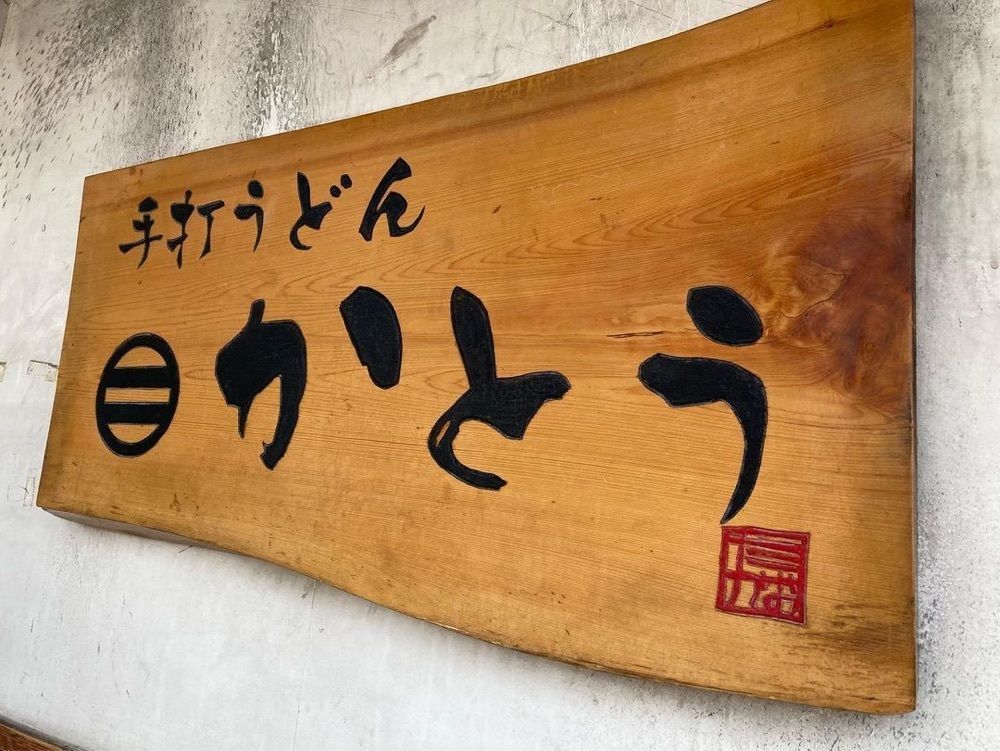 手打うどん
かとう